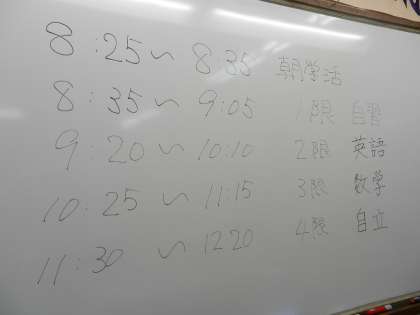 8:25〜8:35 朝学活
8:35〜9:05 1限 自習
9:20〜10:10 2限 英語
10:25〜11:15 3限 数学
11:30〜12:20 4限 自立